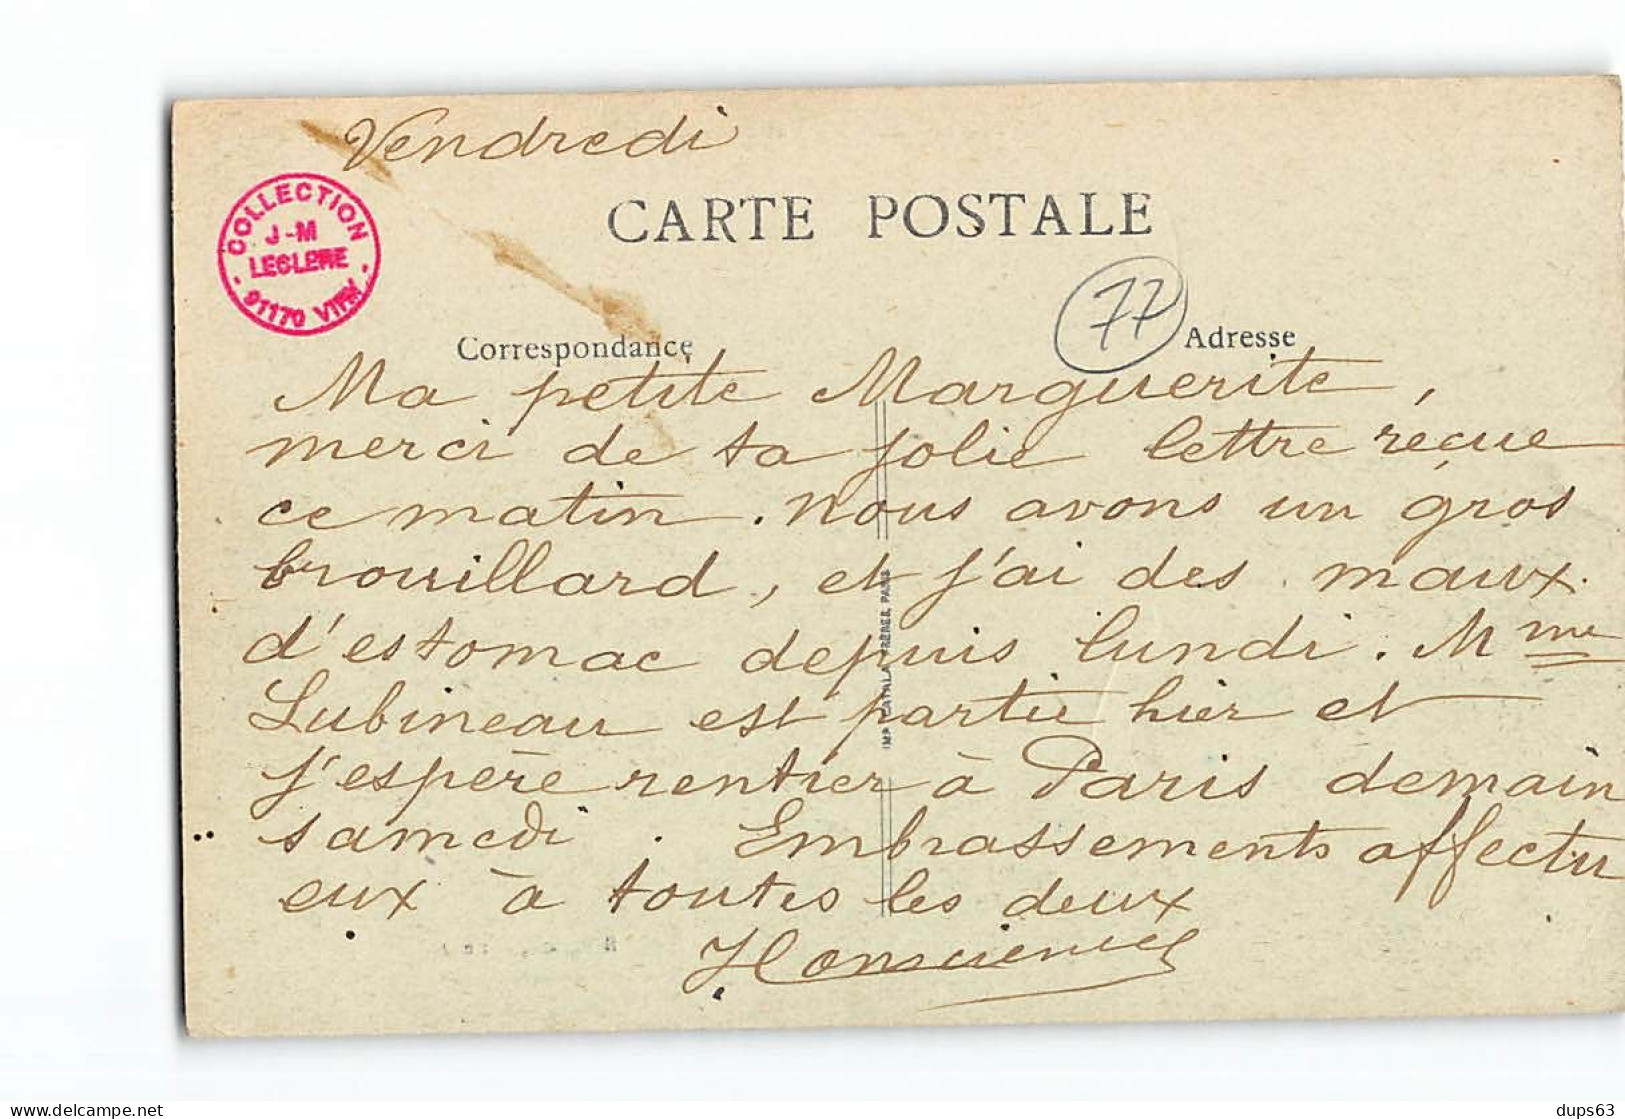 Vendredi
COLLECTION
J-M
LECLERE
91170 VIRY
CARTE POSTALE
77
Correspondance
Adresse
Ma petite Marguerite,
merci de ta jolie lettre reçue
ce matin. Nous avons un gros
brouillard, et j'ai des maux
d'estomac depuis lundi. Mme
Lubineau est partie hier et
j'espère rentrer à Paris demain
samedi. Embrassements affectu
eux à toutes les deux
IMP. CATALA FRÈRES, PARIS
delcampe.net
dups63